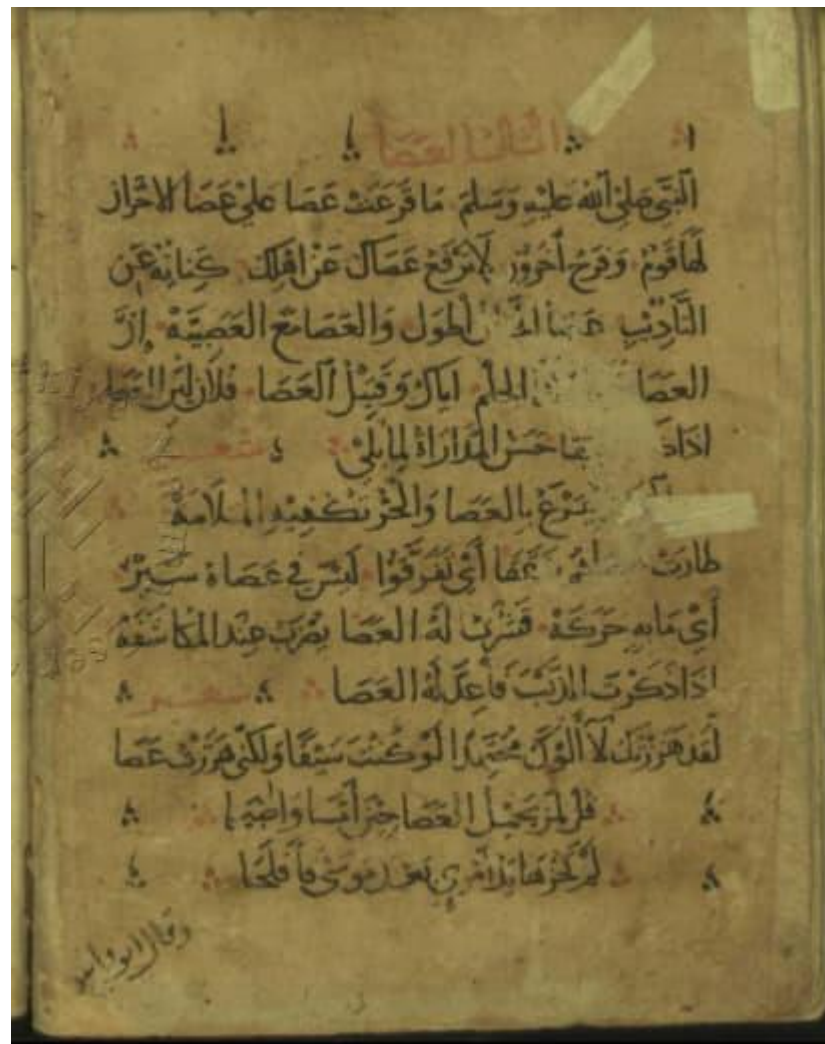 النبي صلى الله عليه وسلم ما قرعت عصا على عصا الا حزن
لها قوم وفرح اخرون لا ترفع عصاك عن اهلك كناية عن
التأديب والعصا مع العصية إن
العصا الحلم اياك وقتيل العصا فلان لين العصا
اذا حسن المداراة لما يلي شعر
بالعصا والحر تكفيه الملامة
طارت عصا أي تفرقوا ليس في عصاه سير
أي ما به حركة قشرت له العصا يضرب عند المكاشفة
اذا ذكرت الذئب فأعد له العصا شعر
لقد هززتك لا آلوك مجتهدا لو كنت سيفا ولكني هززت عصا
قل لمن يحمل العصا حيث أمسا واصبحا
لم تحزها يد امرئ بعد موسى فأفلحا
وقال